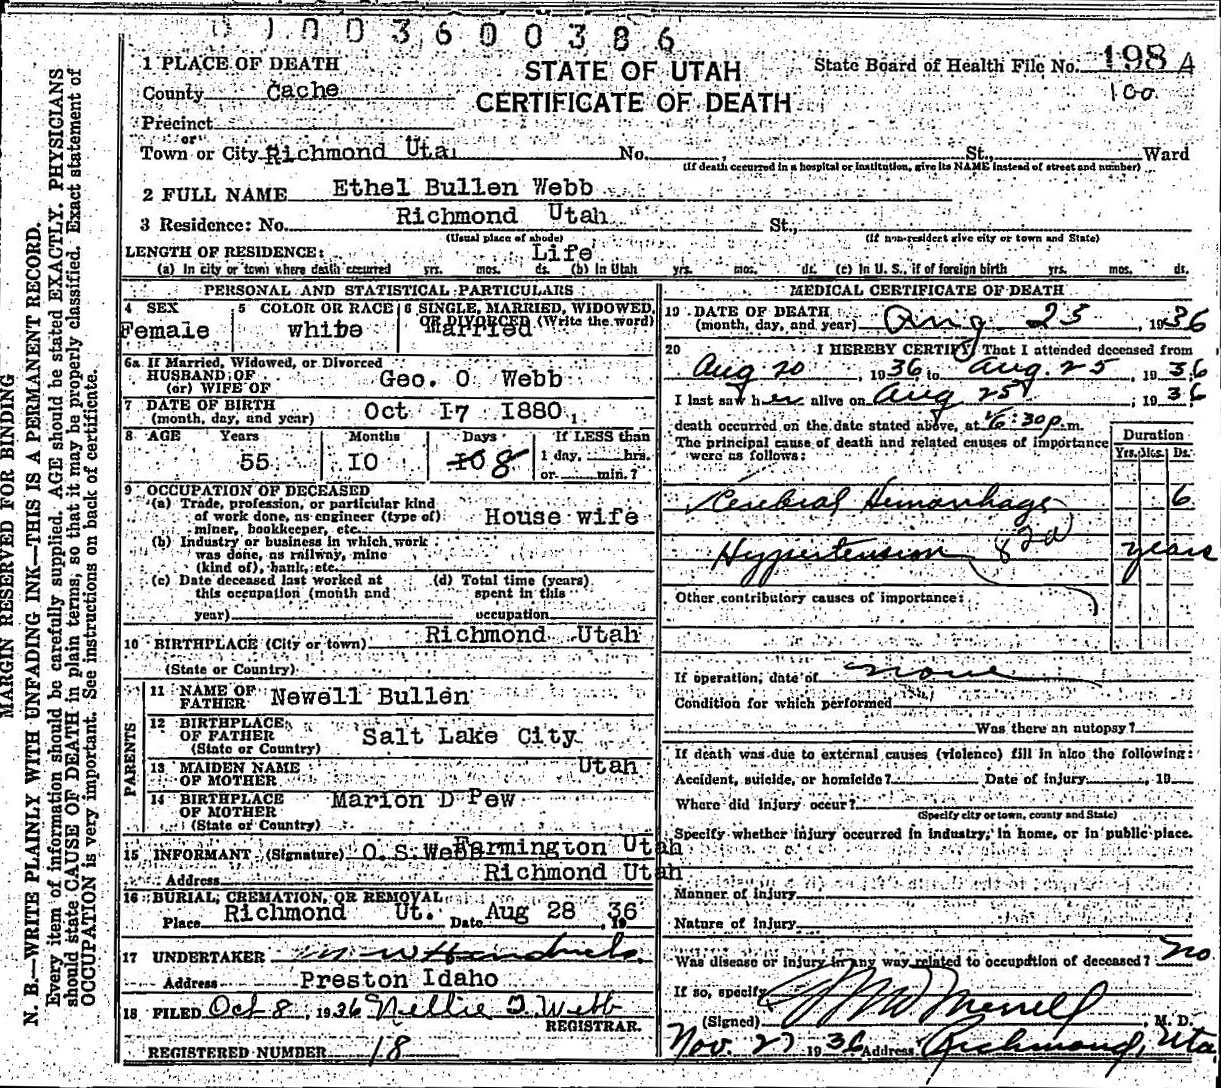 0 1 0 0 3 6 0 0 3 8 6
STATE OF UTAH
CERTIFICATE OF DEATH
State Board of Health File No. 198 A
100
1 PLACE OF DEATH
County Cache
Precinct
or
Town or City Richmond Utah No. , St., Ward
(If death occurred in a hospital or institution, give its NAME instead of street and number)
2 FULL NAME Ethel Bullen Webb
3 Residence: No. Richmond Utah St.,
(Usual place of abode) (If non-resident give city or town and State)
LENGTH OF RESIDENCE: Life
(a) In city or town where death occurred yrs. mos. ds. (b) In Utah yrs. mos. ds. (c) In U. S., if of foreign birth yrs. mos. ds.
PERSONAL AND STATISTICAL PARTICULARS
4 SEX
Female
5 COLOR OR RACE
white
6 SINGLE, MARRIED, WIDOWED,
OR DIVORCED (Write the word)
Married
6a If Married, Widowed, or Divorced
HUSBAND OF
(or) WIFE OF Geo. O Webb
7 DATE OF BIRTH
(month, day, and year) Oct 17 1880
8 AGE Years Months Days If LESS than
55 10 10 8 1 day, hrs.
or min.?
9 OCCUPATION OF DECEASED
(a) Trade, profession, or particular kind
of work done, as engineer (type of)
miner, bookkeeper, etc. House wife
(b) Industry or business in which work
was done, as railway, mine
(kind of), bank, etc.
(c) Date deceased last worked at
this occupation (month and
year)
(d) Total time (years)
spent in this
occupation
10 BIRTHPLACE (City or town) Richmond Utah
(State or Country)
PARENTS
11 NAME OF
FATHER Newell Bullen
12 BIRTHPLACE
OF FATHER
(State or Country) Salt Lake City
Utah
13 MAIDEN NAME
OF MOTHER
14 BIRTHPLACE
OF MOTHER
(State or Country)
Marion D Pew
Farmington Utah
15 INFORMANT (Signature) O. S. Webb
Address Richmond Utah
16 BURIAL, CREMATION, OR REMOVAL
Place Richmond Ut. Date Aug 28 , 19 36
17 UNDERTAKER M W Hendricks
Address Preston Idaho
18 FILED Oct 8 , 1936 Nellie T. Webb
REGISTRAR.
REGISTERED NUMBER 18
MEDICAL CERTIFICATE OF DEATH
19 DATE OF DEATH
(month, day, and year) Aug 25 , 1936
20 I HEREBY CERTIFY, That I attended deceased from
Aug 20 , 1936 to Aug. 25 , 1936
I last saw her alive on Aug 25 , 1936
death occurred on the date stated above, at 6:30 p.m.
The principal cause of death and related causes of importance
were as follows:
Duration
Yrs. Mos. Ds.
Cerebral Hemorrhage 6
82a
Hypertension years
Other contributory causes of importance:
If operation, date of none
Condition for which performed
Was there an autopsy?
If death was due to external causes (violence) fill in also the following:
Accident, suicide, or homicide? Date of injury , 19
Where did injury occur?
(Specify city or town, county and State)
Specify whether injury occurred in industry, in home, or in public place.
Manner of injury
Nature of injury
Was disease or injury in any way related to occupation of deceased? no
If so, specify
(Signed) Merrell , M. D.
Nov. 27 1936 Address Richmond, Uta.
MARGIN RESERVED FOR BINDING
N. B.—WRITE PLAINLY WITH UNFADING INK—THIS IS A PERMANENT RECORD.
Every item of information should be carefully supplied. AGE should be stated EXACTLY. PHYSICIANS
should state CAUSE OF DEATH in plain terms, so that it may be properly classified. Exact statement of
OCCUPATION is very important. See instructions on back of certificate.